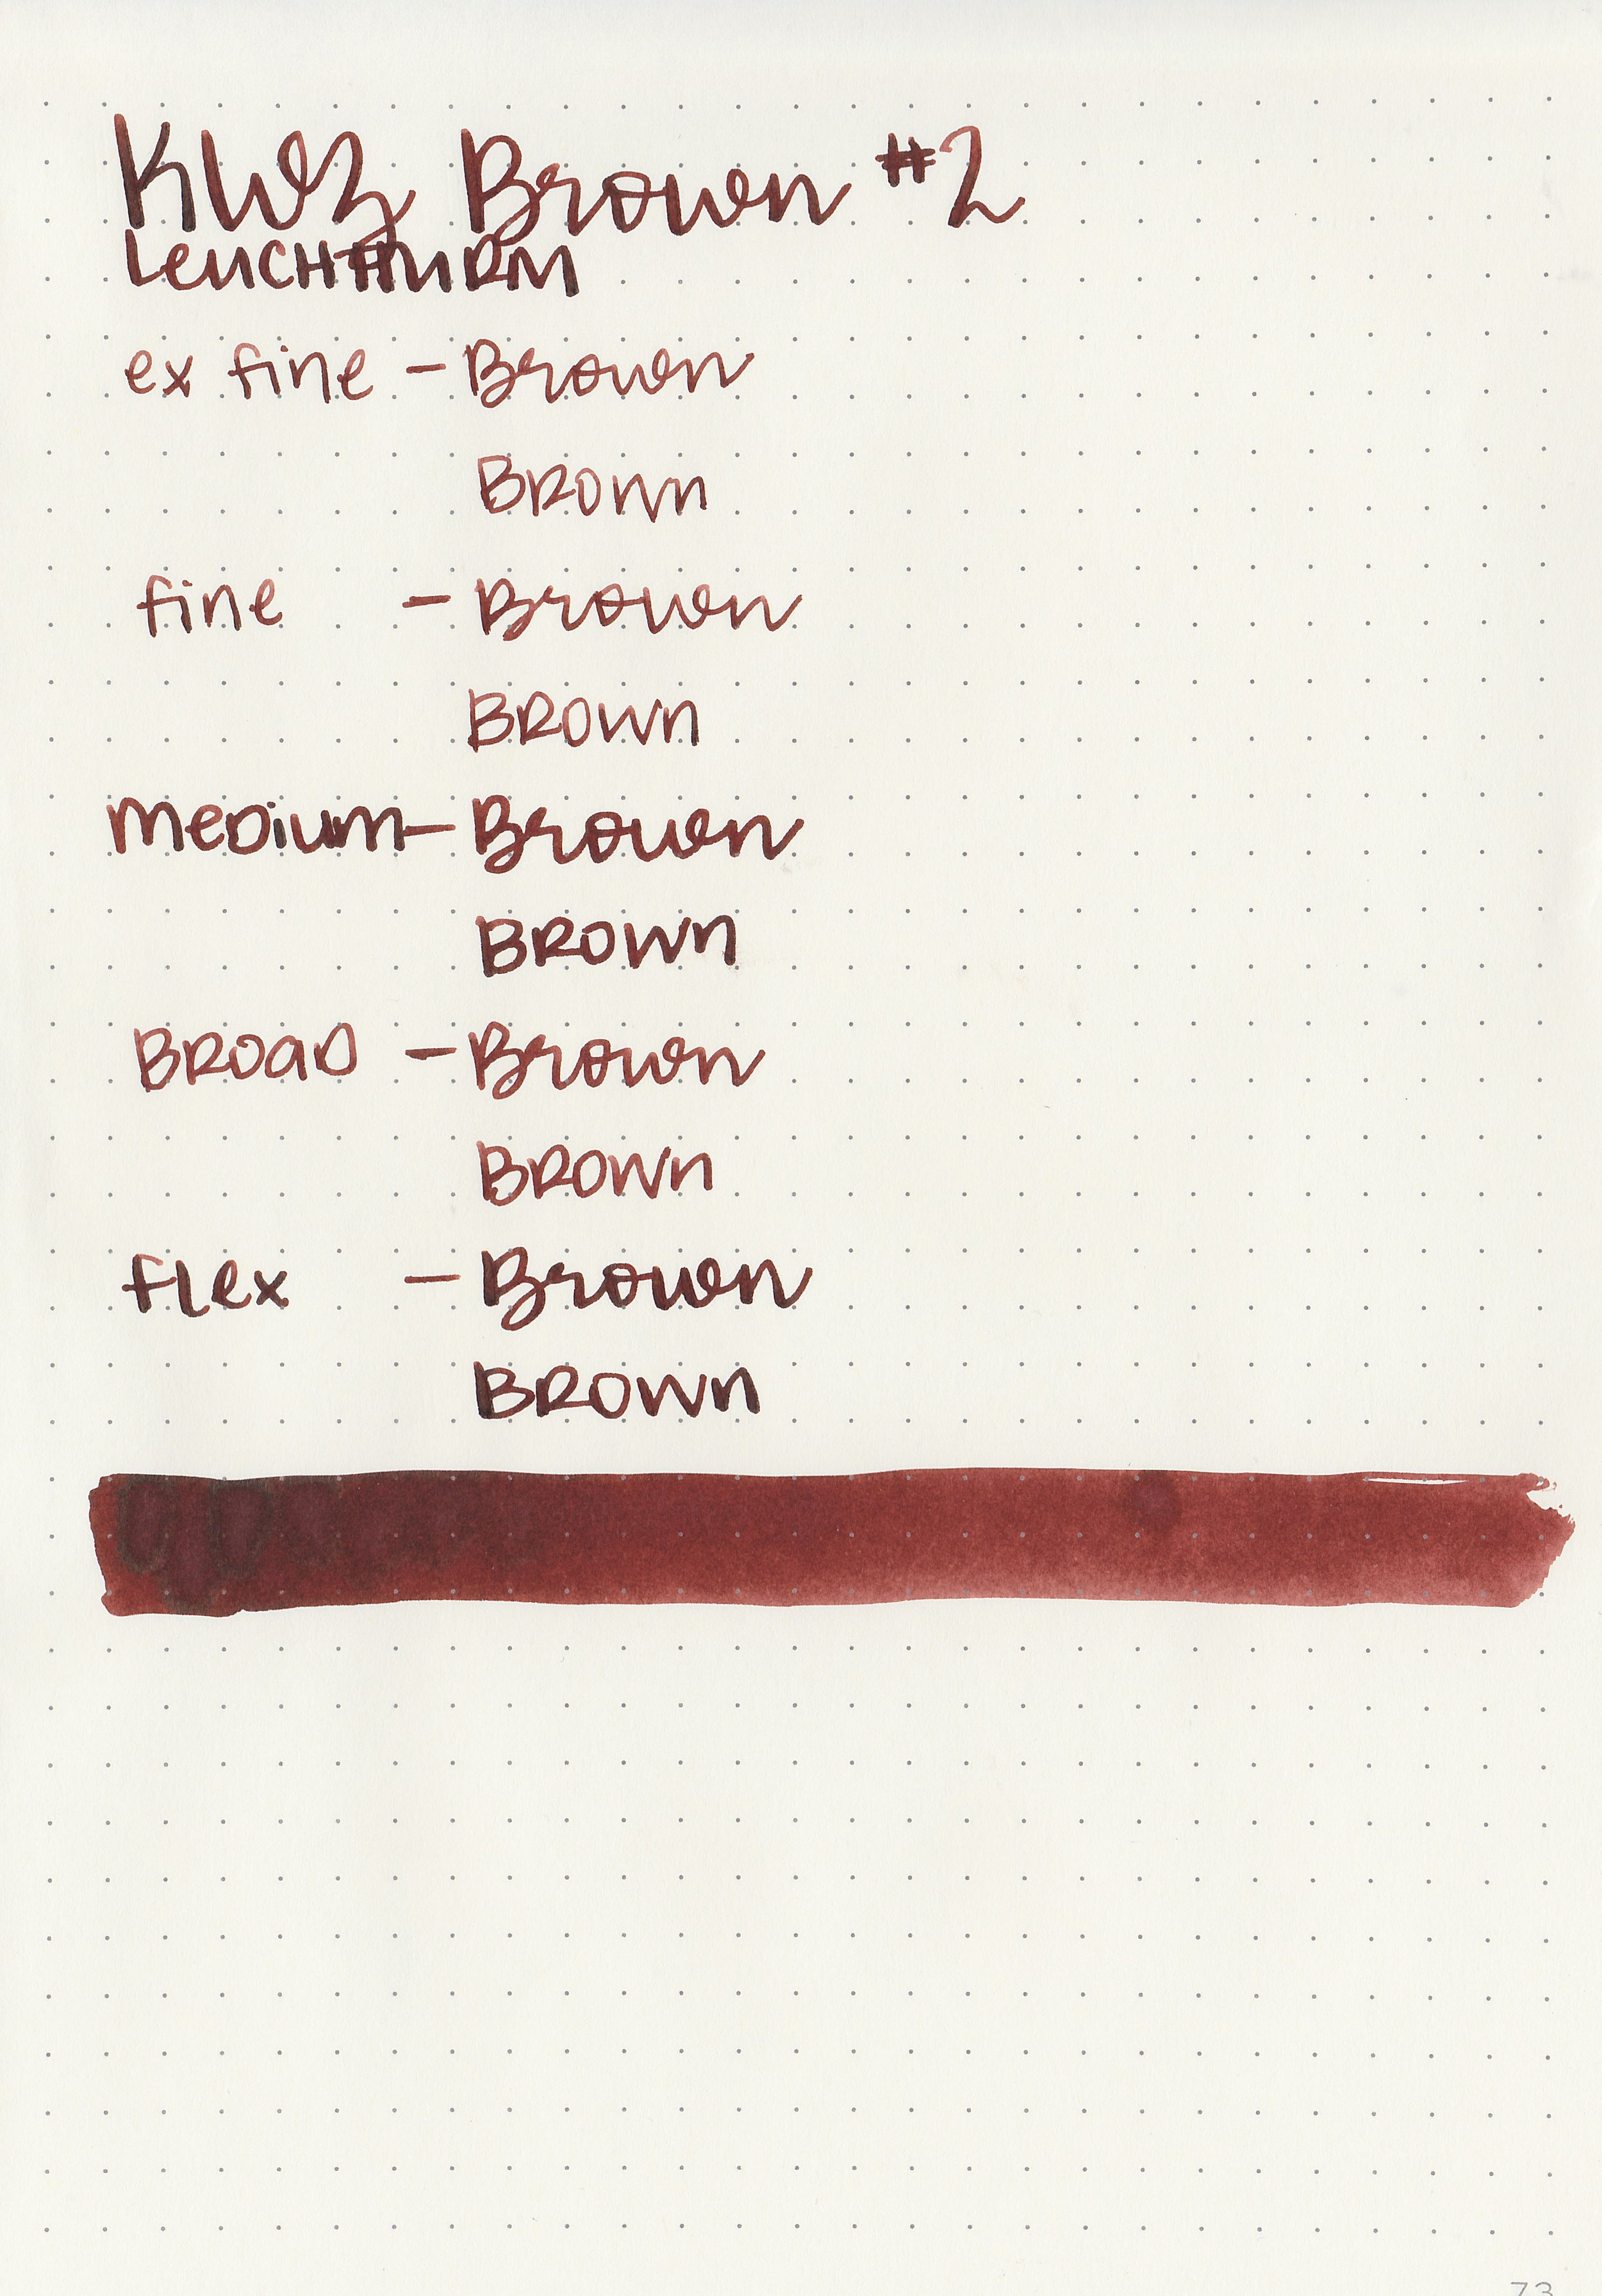 KWZ Brown #2
LEUCHTTURM
ex fine - Brown
BROWN
fine - Brown
BROWN
medium - Brown
BROWN
BROAD - Brown
BROWN
flex - Brown
BROWN
73